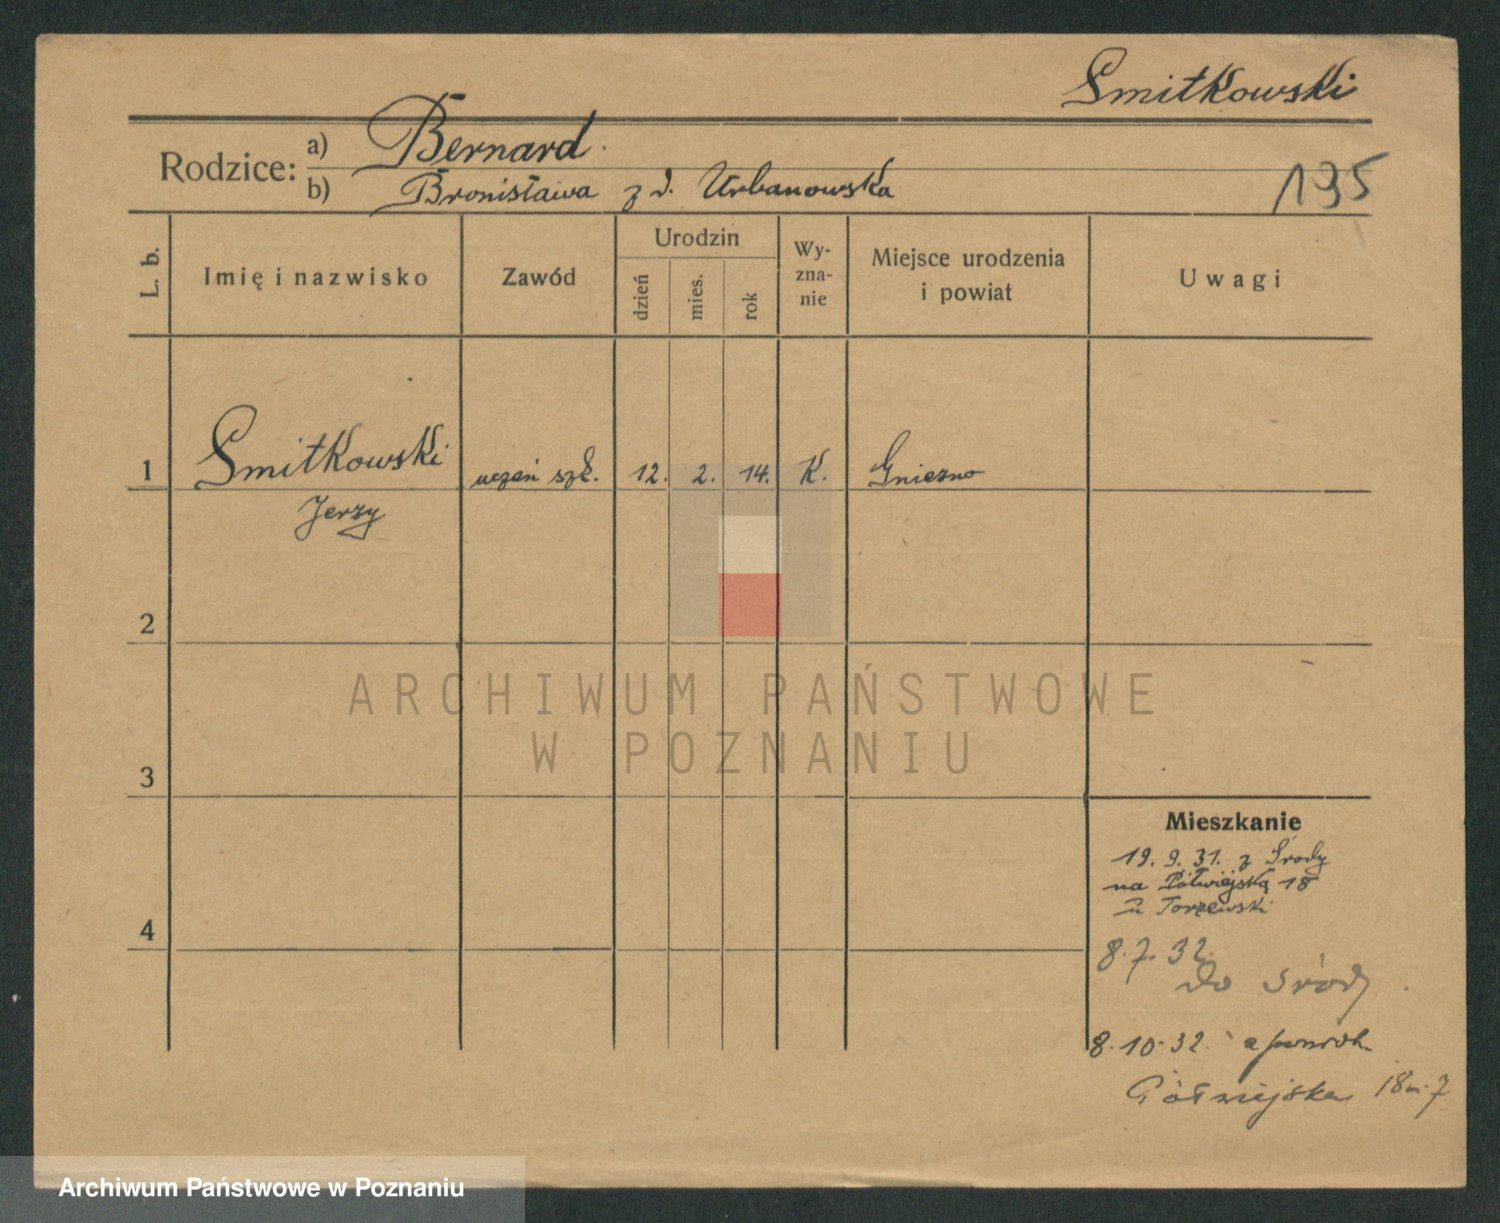 Smitkowski
Rodzice: a) Bernard
b) Bronisława z d. Urbanowska
195
L. b.
Imię i nazwisko
Zawód
Urodzin
dzień
mies.
rok
Wy-
zna-
nie
Miejsce urodzenia
i powiat
Uwagi
1 Smitkowski uczeń szk. 12. 2. 14. K. Gniezno
Jerzy
2
3
4
Mieszkanie
19. 9. 31. z Środy
na Półwiejską 18
u Torzewski
8.7.32.
do Środy
8.10.32.
Półwiejska 18 m. 7
ARCHIWUM PAŃSTWOWE
W POZNANIU
Archiwum Państwowe w Poznaniu